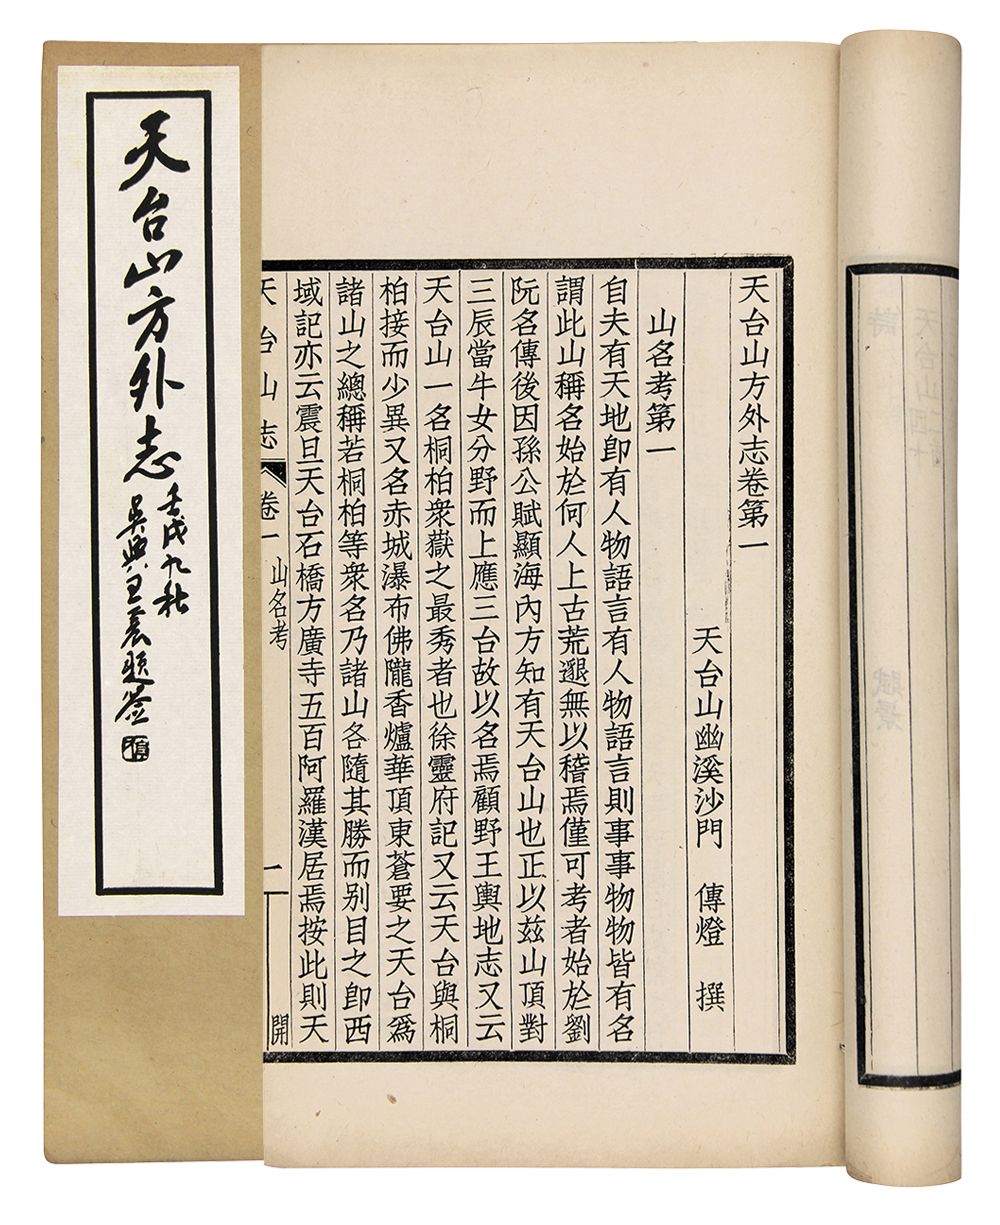 天台山方外志
壬戌九秋
吳興王震題簽
天台山方外志卷第一
天台山幽溪沙門　傳燈　撰
山名考第一
自夫有天地即有人物語言有人物語言則事事物物皆有名
謂此山稱名始於何人上古荒邈無以稽焉僅可考者始於劉
阮名傳後因孫公賦顯海內方知有天台山也正以玆山頂對
三辰當牛女分野而上應三台故以名焉顧野王輿地志又云
天台山一名桐柏衆嶽之最秀者也徐靈府記又云天台與桐
柏接而少異又名赤城瀑布佛隴香爐華頂東蒼要之天台爲
諸山之總稱若桐柏等衆名乃諸山各隨其勝而别目之即西
域記亦云震旦天台石橋方廣寺五百阿羅漢居焉按此則天
天台山志　卷一　山名考　一　開